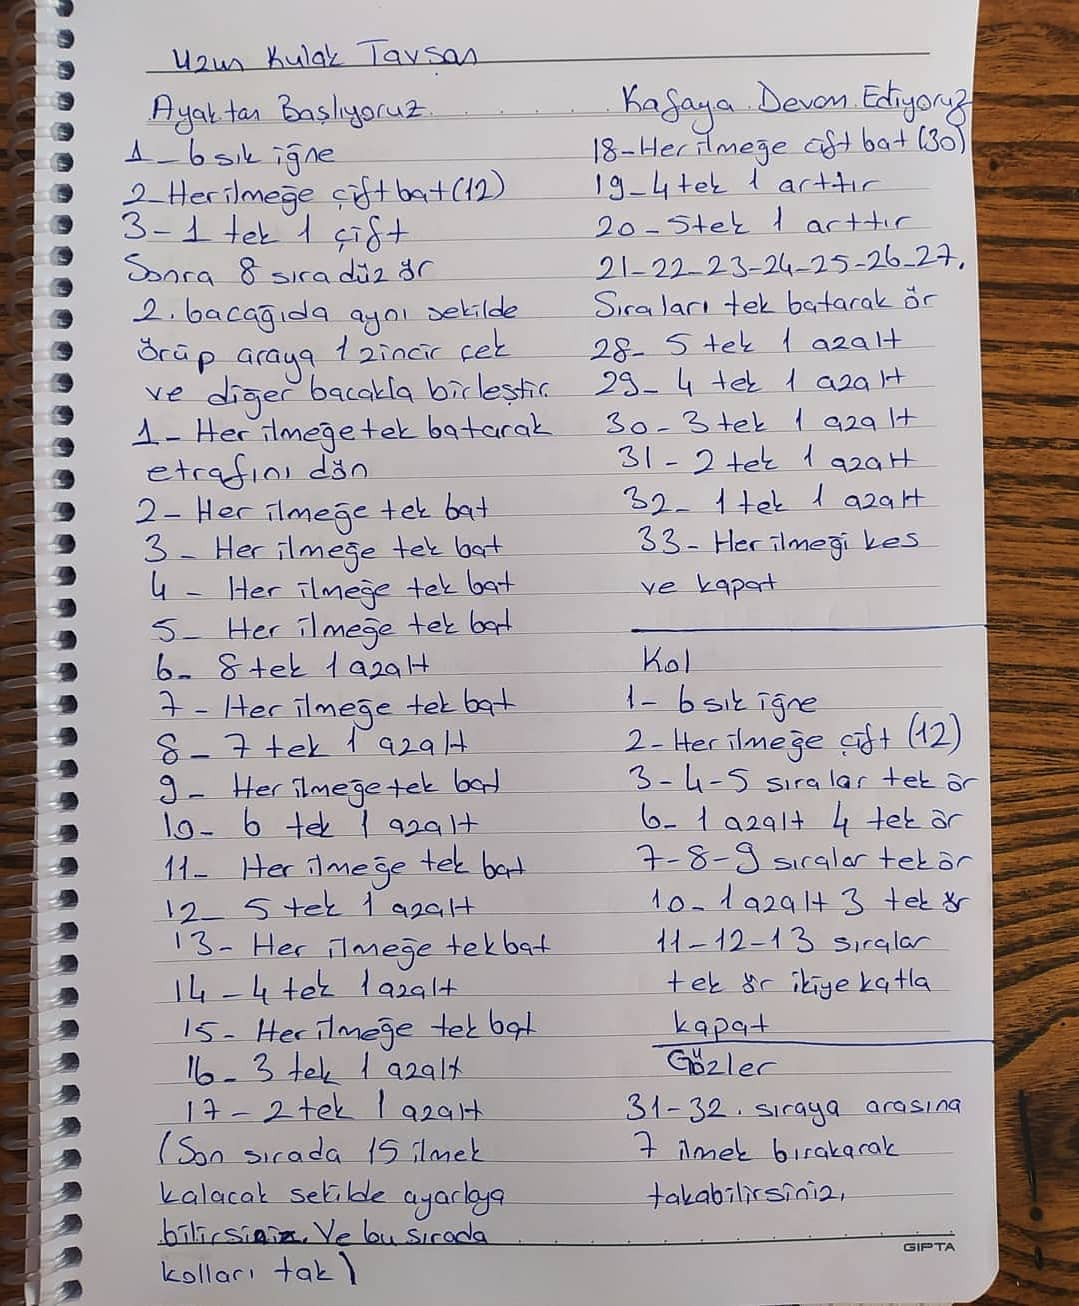 Uzun Kulak Tavşan
Ayaktan Başlıyoruz
1- 6 sık iğne
2- Her ilmeğe çift bat (12)
3- 1 tek 1 çift
Sonra 8 sıra düz ör
2. bacağıda aynı şekilde
örüp araya 1 zincir çek
ve diğer bacakla birleştir.
1- Her ilmeğe tek batarak
etrafını dön
2- Her ilmeğe tek bat
3- Her ilmeğe tek bat
4- Her ilmeğe tek bat
5- Her ilmeğe tek bat
6- 8 tek 1 azalt
7- Her ilmeğe tek bat
8- 7 tek 1 azalt
9- Her ilmeğe tek bat
10- 6 tek 1 azalt
11- Her ilmeğe tek bat
12- 5 tek 1 azalt
13- Her ilmeğe tek bat
14- 4 tek 1 azalt
15- Her ilmeğe tek bat
16- 3 tek 1 azalt
17- 2 tek 1 azalt
(Son sırada 15 ilmek
kalacak şekilde ayarlaya
bilirsiniz. Ve bu sırada
kolları tak)
Kafaya Devam Ediyoruz
18- Her ilmeğe çift bat (30)
19- 4 tek 1 arttır
20- 5 tek 1 arttır
21-22-23-24-25-26-27.
Sıraları tek batarak ör
28- 5 tek 1 azalt
29- 4 tek 1 azalt
30- 3 tek 1 azalt
31- 2 tek 1 azalt
32- 1 tek 1 azalt
33- Her ilmeği kes
ve kapat
Kol
1- 6 sık iğne
2- Her ilmeğe çift (12)
3-4-5 sıralar tek ör
6- 1 azalt 4 tek ör
7-8-9 sıralar tek ör
10- 1 azalt 3 tek ör
11-12-13 sıralar
tek ör ikiye katla
kapat
Gözler
31-32. sıraya arasına
7 ilmek bırakarak
takabilirsiniz.
GIPTA